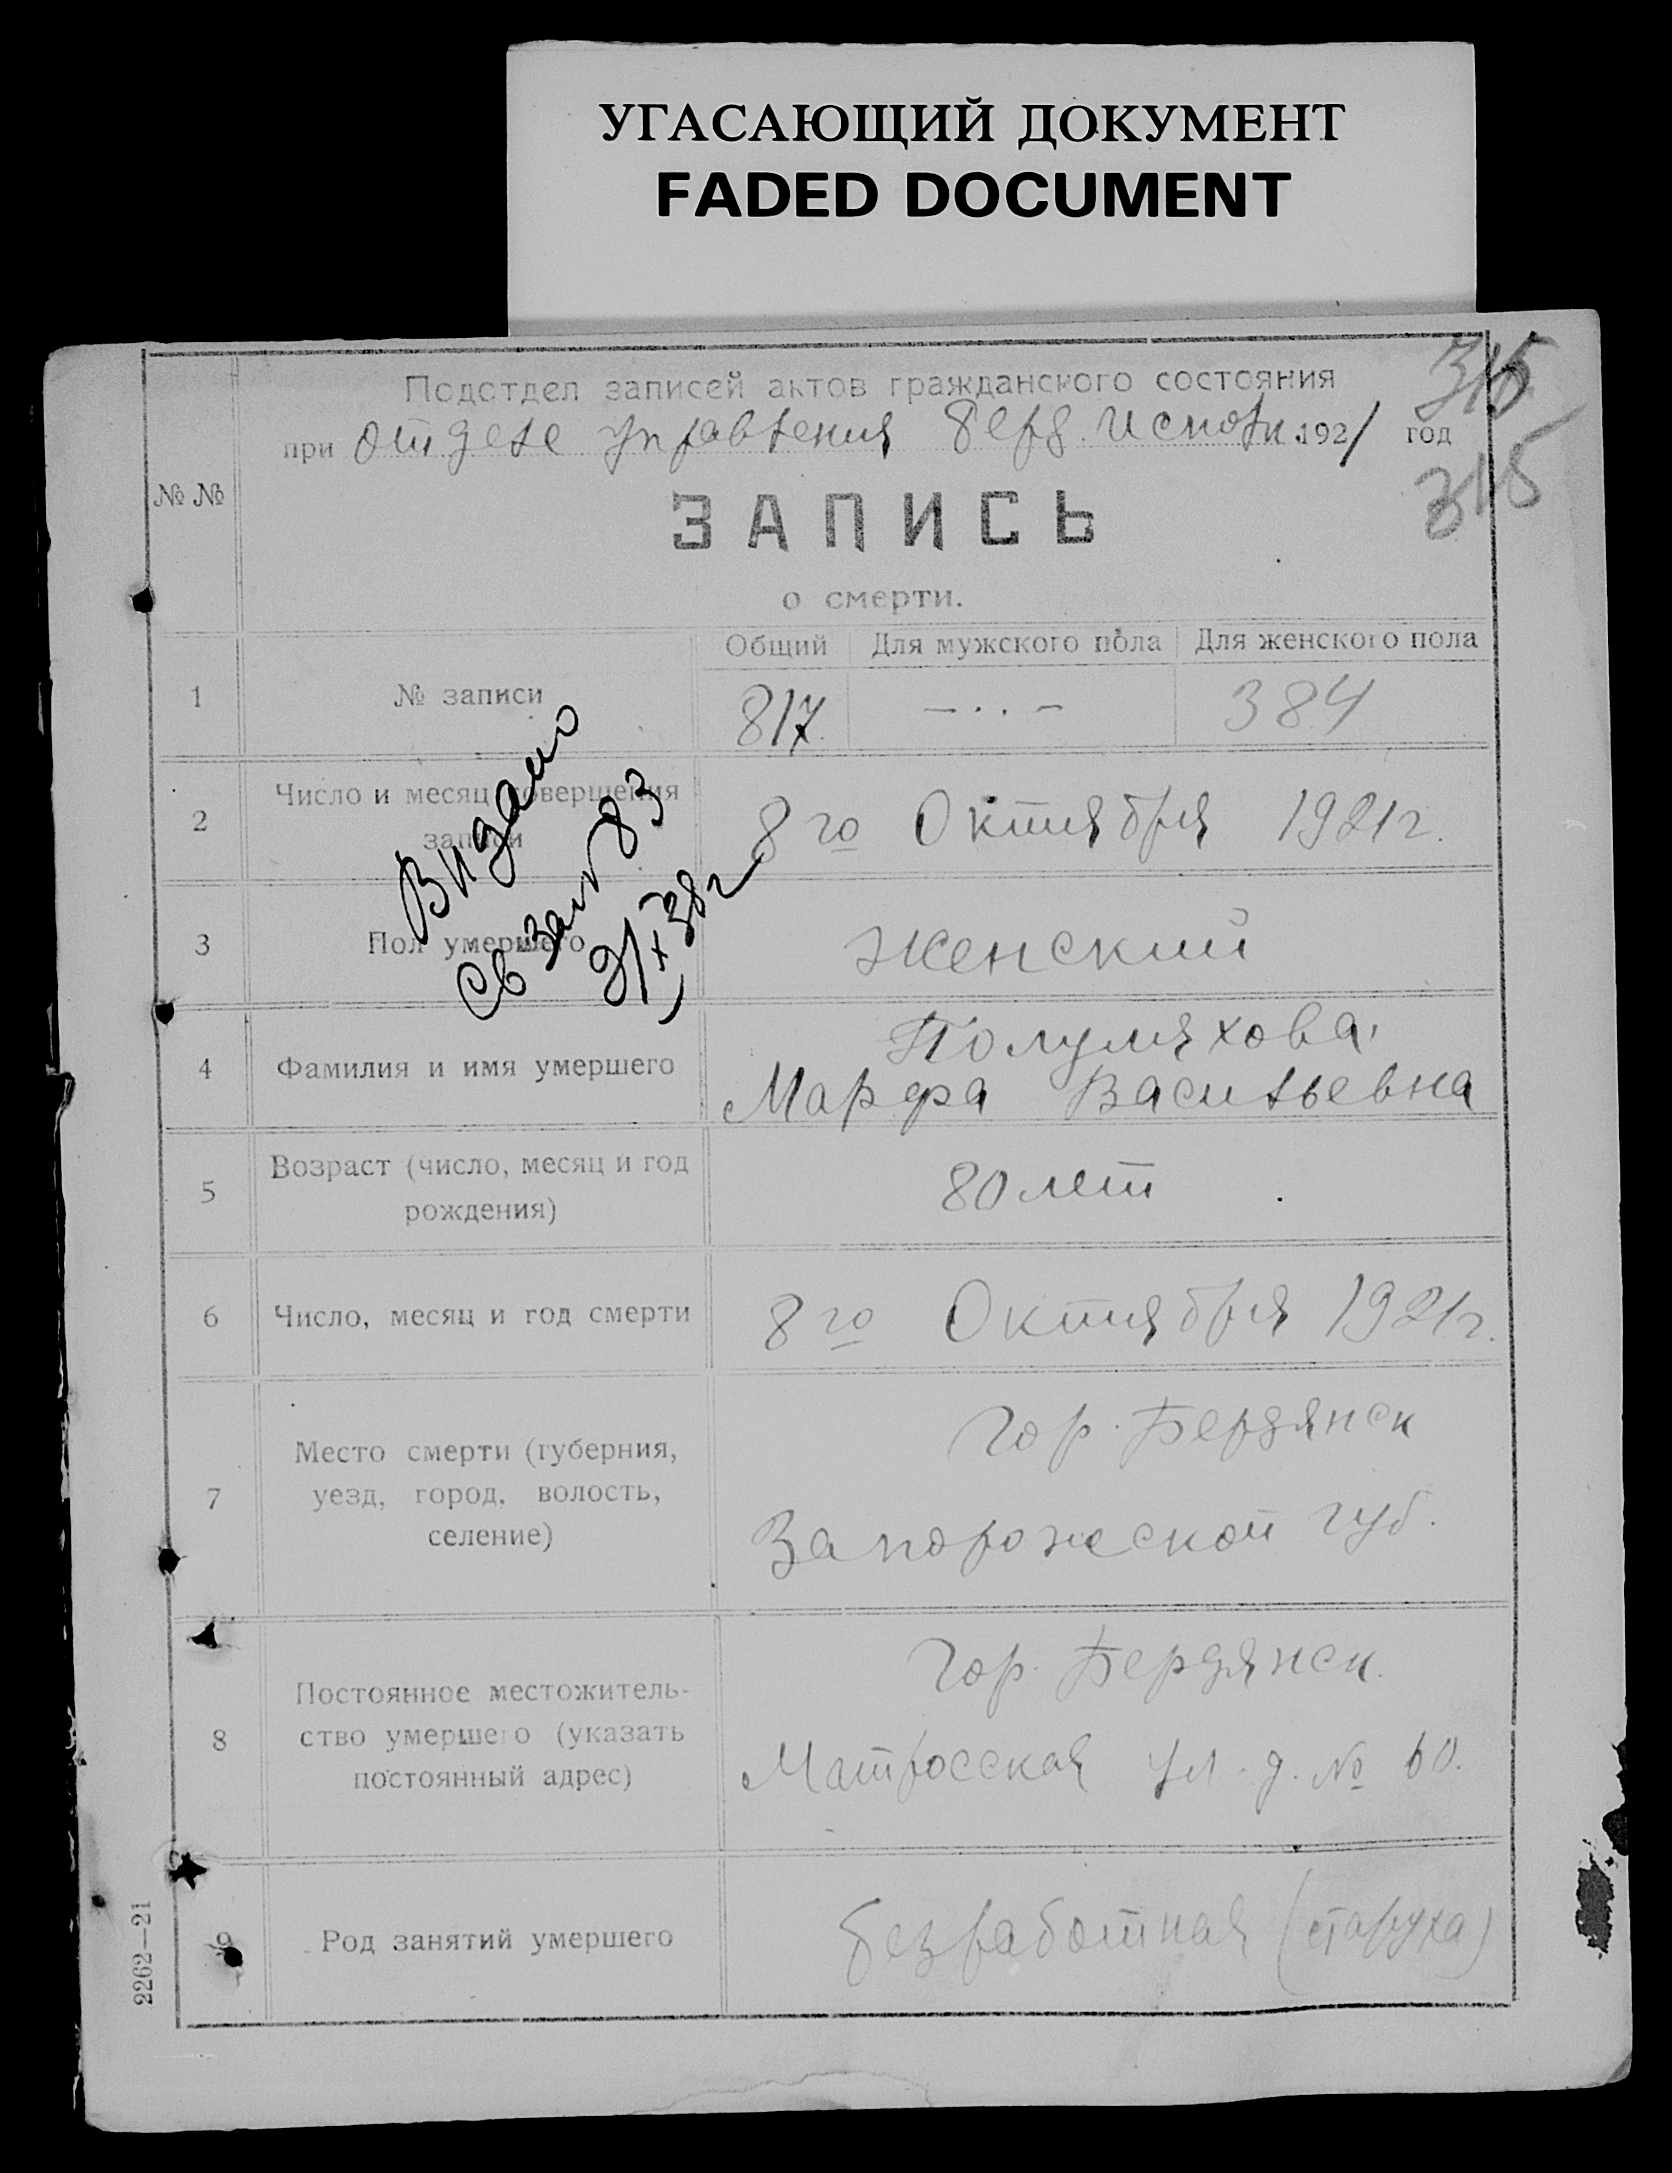 УГАСАЮЩИЙ ДОКУМЕНТ
FADED DOCUMENT
315
Подотдел записей актов гражданского состояния
при отделе управления Берд. Исполк. 1921 год
315
№ №
ЗАПИСЬ
о смерти.
Общий Для мужского пола Для женского пола
1 № записи 817 — . . — 384
2 Число и месяц совершения
записи
8го Октября 1921 г.
Выдано
Св за № 83
21/X 38 г
3 Пол умершего Женский
4 Фамилия и имя умершего
Полумяхова,
Марфа Васильевна
5 Возраст (число, месяц и год
рождения)
80 лет
6 Число, месяц и год смерти 8го Октября 1921 г.
7 Место смерти (губерния,
уезд, город, волость,
селение)
Гор. Бердянск
Запорожской губ.
8 Постоянное местожитель-
ство умершего (указать
постоянный адрес)
Гор. Бердянск.
Матросская ул. д. № 60.
9 Род занятий умершего безработная (старуха)
2262—21